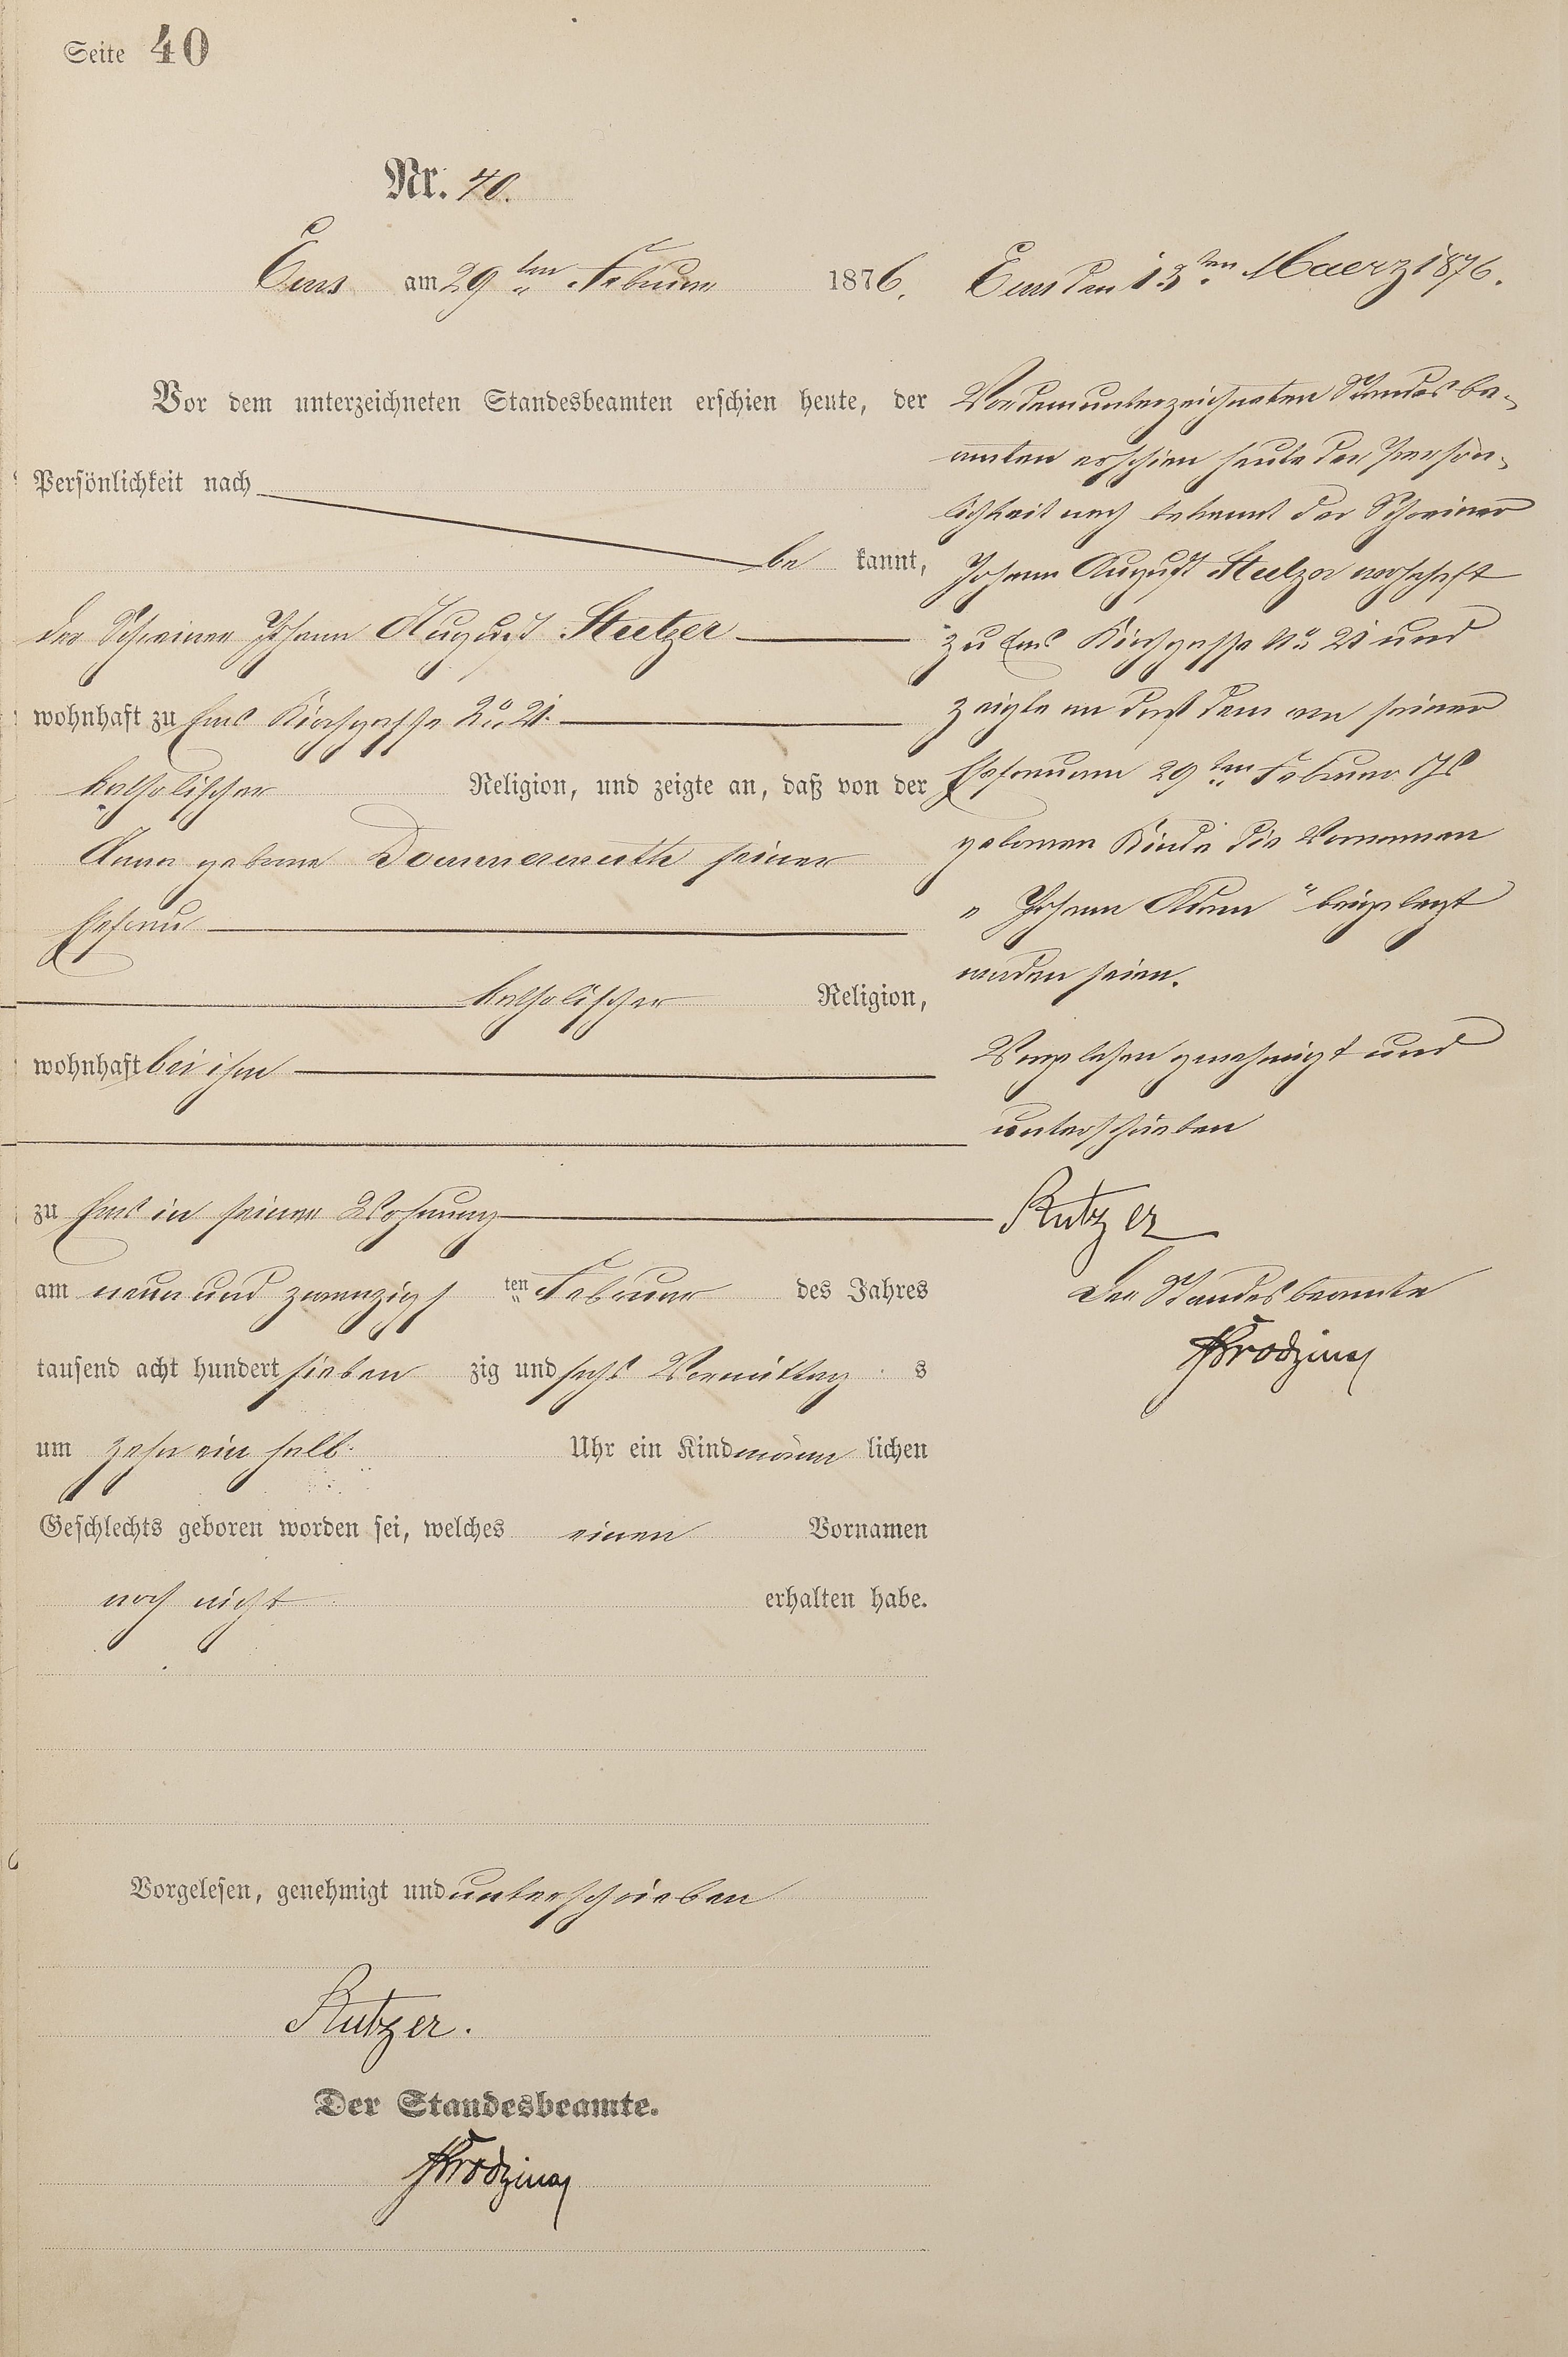 Seite 40
Nr. 40.
Ems am 29ten Februar 1876.
Vor dem unterzeichneten Standesbeamten erschien heute, der
Persönlichkeit nach
be kannt,
der Schreiner Johann August Stutzer
wohnhaft zu Ems Kirchgasse No 21.
katholischer Religion, und zeigte an, daß von der
Anna geborne Donnermuth seiner
Ehefrau
katholischer Religion,
wohnhaft bei ihm
zu Ems in seiner Wohnung
am neun und zwanzigs ten Februar des Jahres
tausend acht hundert sieben zig und sechs Vormittag s
um zehn ein halb Uhr ein Kind männ lichen
Geschlechts geboren worden sei, welches einen Vornamen
noch nicht erhalten habe.
Vorgelesen, genehmigt und unterschrieben
Stutzer.
Der Standesbeamte.
Ems den 13ten Maerz 1876.
Vor dem unterzeichneten Standesbe-
amten erschien heute der Persön-
lichkeit nach bekannt der Schreiner
Johann August Stutzer wohnhaft
zu Ems Kirchgasse No 21 und
zeigte an daß dem von seiner
Ehefrau am 29ten Februar
gebornen Kinde die Vornamen
"Johann Adam" beigelegt
worden seien.
Vorgelesen genehmigt und
unterschrieben
Stutzer
Der Standesbeamte